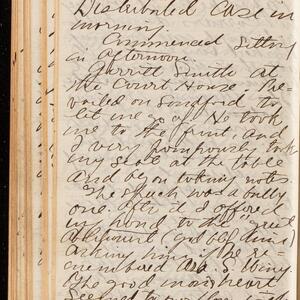 Distributed Case in
morning.
Commenced sitting
in afternoon.
Gerritt Smith at
the Court House. Pre-
vailed on Sandford to
let me go up. He took
me to the front, and
I very pompously took
my seat at the table
and began taking notes.
The speech was a bully
one. After it I offered
my hand to the "great
abolitionist
asking him if he re-
membered
The good man's heart
seemed to